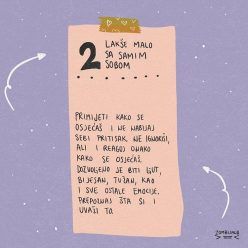 2 LAKŠE MALO
SA SAMIM
SOBOM
PRIMIJETI KAKO SE
OSJEĆAŠ I NE NABIJAJ
SEBI PRITISAK. NE IGNORIŠI,
ALI I REAGUJ ONAKO
KAKO SE OSJEĆAŠ.
DOZVOLJENO JE BITI LJUT,
BIJESAN, TUŽAN, KAO
I SVE OSTALE EMOCIJE.
PREPOZNAJ ŠTA SI I
UVAŽI TO.